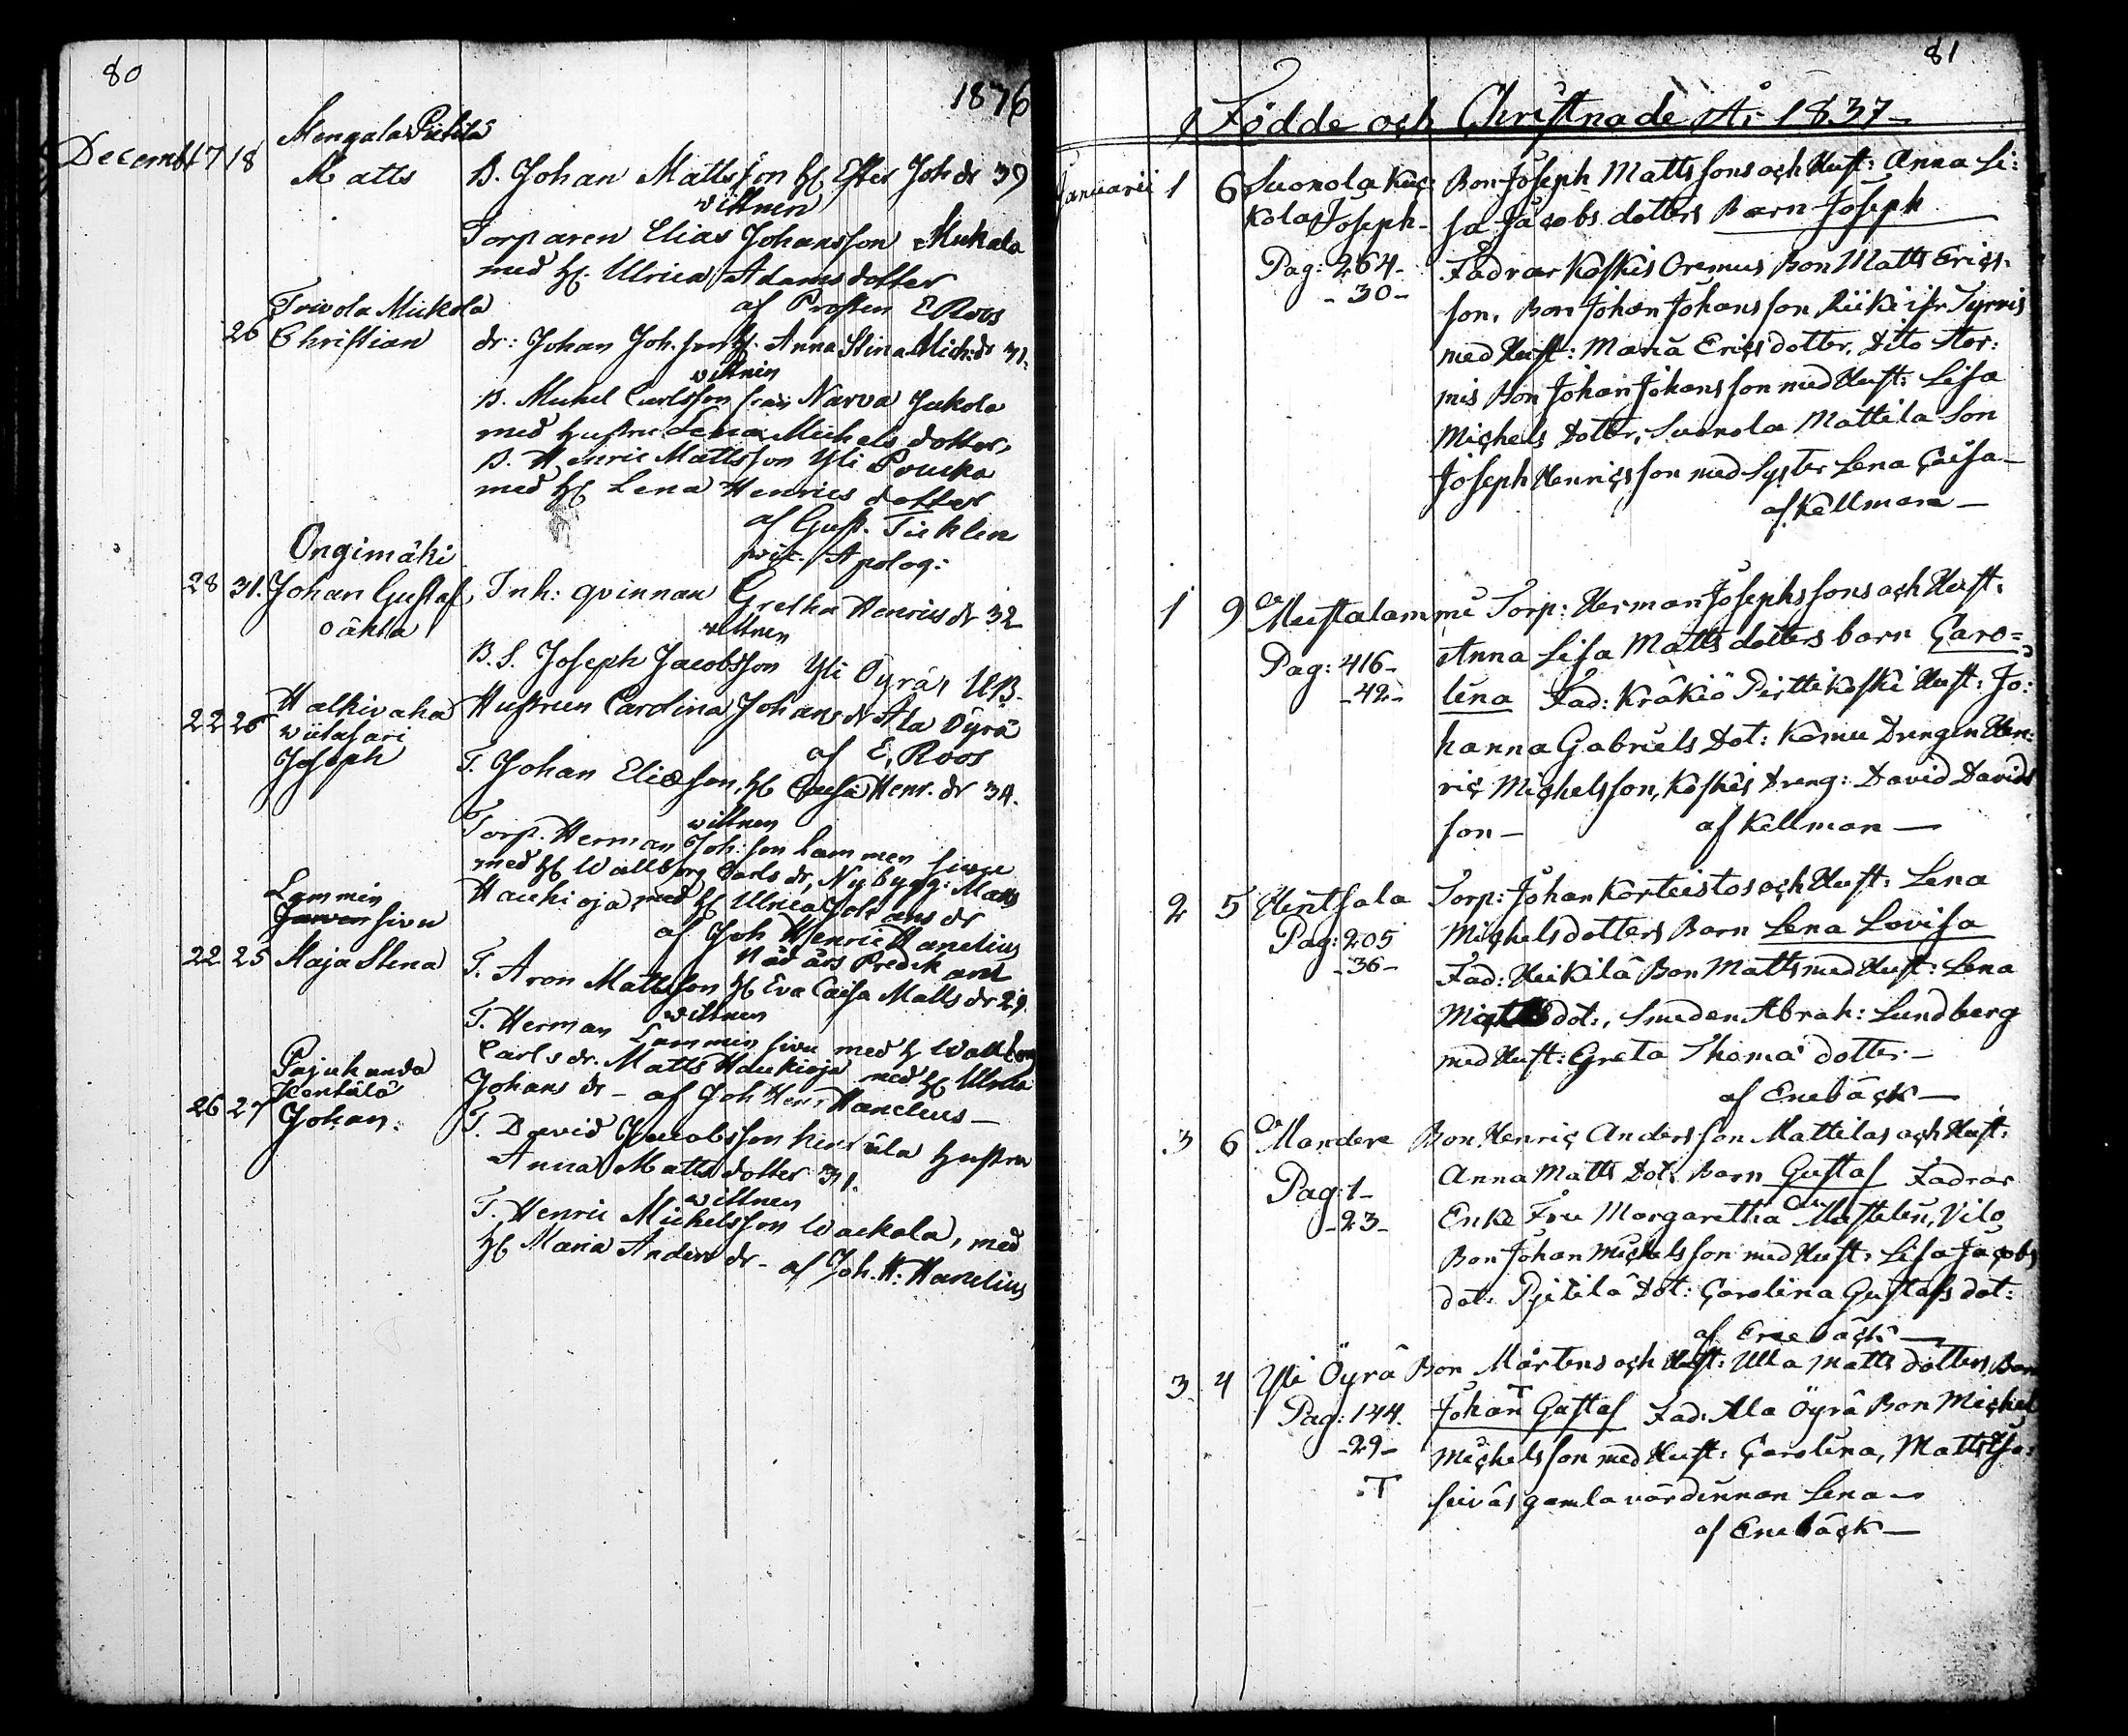 80
1876
Mengala Pietilä
Decemb 17 18 Matts B. Johan Mattsson H Ester Joh dr 39
wittnen
Torparen Elias Johansson Mukala
med H. Ulrica Adamsdotter
af Prosten E Roos
Trivola Mickola
26 Christian dr: Johan Joh.son H. Anna Stina Mich:dr 31.
wittnen
B. Michel Carlsson från Narva Jukola
med hustru Lena Michels dotter,
B. Henric Mattsson Yli Poucka
med H Lena Henrics dotter
af Gust. Ticklen
vic. Apolog:
Ongimäki
28 31. Johan Gustaf, Inh: qvinnan Gretha Henrics dr 32
oäkta
wittnen
B. S. Joseph Jacobsson Yli Öyrä, UB.
Hustrun Carolina Johans dr Ala Öyrä
af E. Roos
Halkivaha
22 26 wiitasari
Joseph T. Johan Eliæson, H Caisa Henr. dr 34.
wittnen
Torp. Herman Joh: son Lammen sivu
med H Wallborg Carls dr, Nybygg: Matts
Haukioja med H Ulrica Johans dr
af Joh Henric Hanelius
Nådårs Predikant
Lammin
sivu
22 25 Maja Stena T. Aron Mattsson H Eva Caisa Matts dr 29.
wittnen
T. Herman Lammin sivu med H Wallborg
Carls dr. Matts Haukioja med H Ulrica
Johans dr – af Joh Henr Hanelius –
Pajuhanda
Kentälä
26 27 Johan: T. David Jacobsson hustru
Anna Matts dotter 31.
wittnen
T. Henric Michelsson Wackala, med
H Maria Anders dr – af Joh. H: Hanelius
81
Födde och Christnade År 1837 –
Januarii 1 6 Suonola Kuc: Bon Joseph Mattssons och Hust: Anna Li:
kola Joseph – sa Jacobs dotters Barn Joseph
Pag: 264 – Fadrar Koskis Oremus Bon Matts Erics:
– 30 – son, Bon Johan Johansson Tyrvis
med Hust: Maria Ericsdotter, Dito Stor:
mis Bon Johan Johansson med Hust: Lisa
Michels Dotter, Suonola Mattila Son
Joseph Henricsson med Syster Lena Caisa –
af Kellman –
1 9 Mustalammi Torp: Herman Josephssons och Hust:
Pag: 416 – Anna Lisa Matts dotters barn Caro=
– 42 – lina Fad: Kräkiö Pirttikoski Hust: Jo:
hanna Gabriels Dot: Kämu Drengen Hen:
ric Michelsson, Koskis Dreng: David Davids
son – af Kellman –
2 5 Hintsala Torp: Johan Korteistos och Hust: Lena
Pag: 205 Michelsdotters Barn Lena Lovisa
– 36 – Fad: Heikilä Bon Matts med Hust: Lena
dot:, Smeden Abrah: Lundberg
med Hust: Greta Thoma dotter –
af Enebäck –
3 6 Mandere Bon Henric Andersson Mattilas och Hust:
Pag: 1 – Anna Matts Dot. Barn Gustaf Fadrar
– 23 – Enke Fru Margaretha Mustelin, Vilo
Bon Johan Michelsson med Hust: Lisa Jacobs
dot: Pjetilä Dot: Carolina Gustafs dot:
af Enebäck –
3 4 Yli Öyrä Bon Mårtens och Hust: Ulla Matts dotters Barn
Pag: 144. Johan Gustaf Fad: Ala Öyrä Bon Michel
– 29 – Michelsson med Hust: Carolina, Matts
T gamla värdinnan Lena –
af Enebäck –